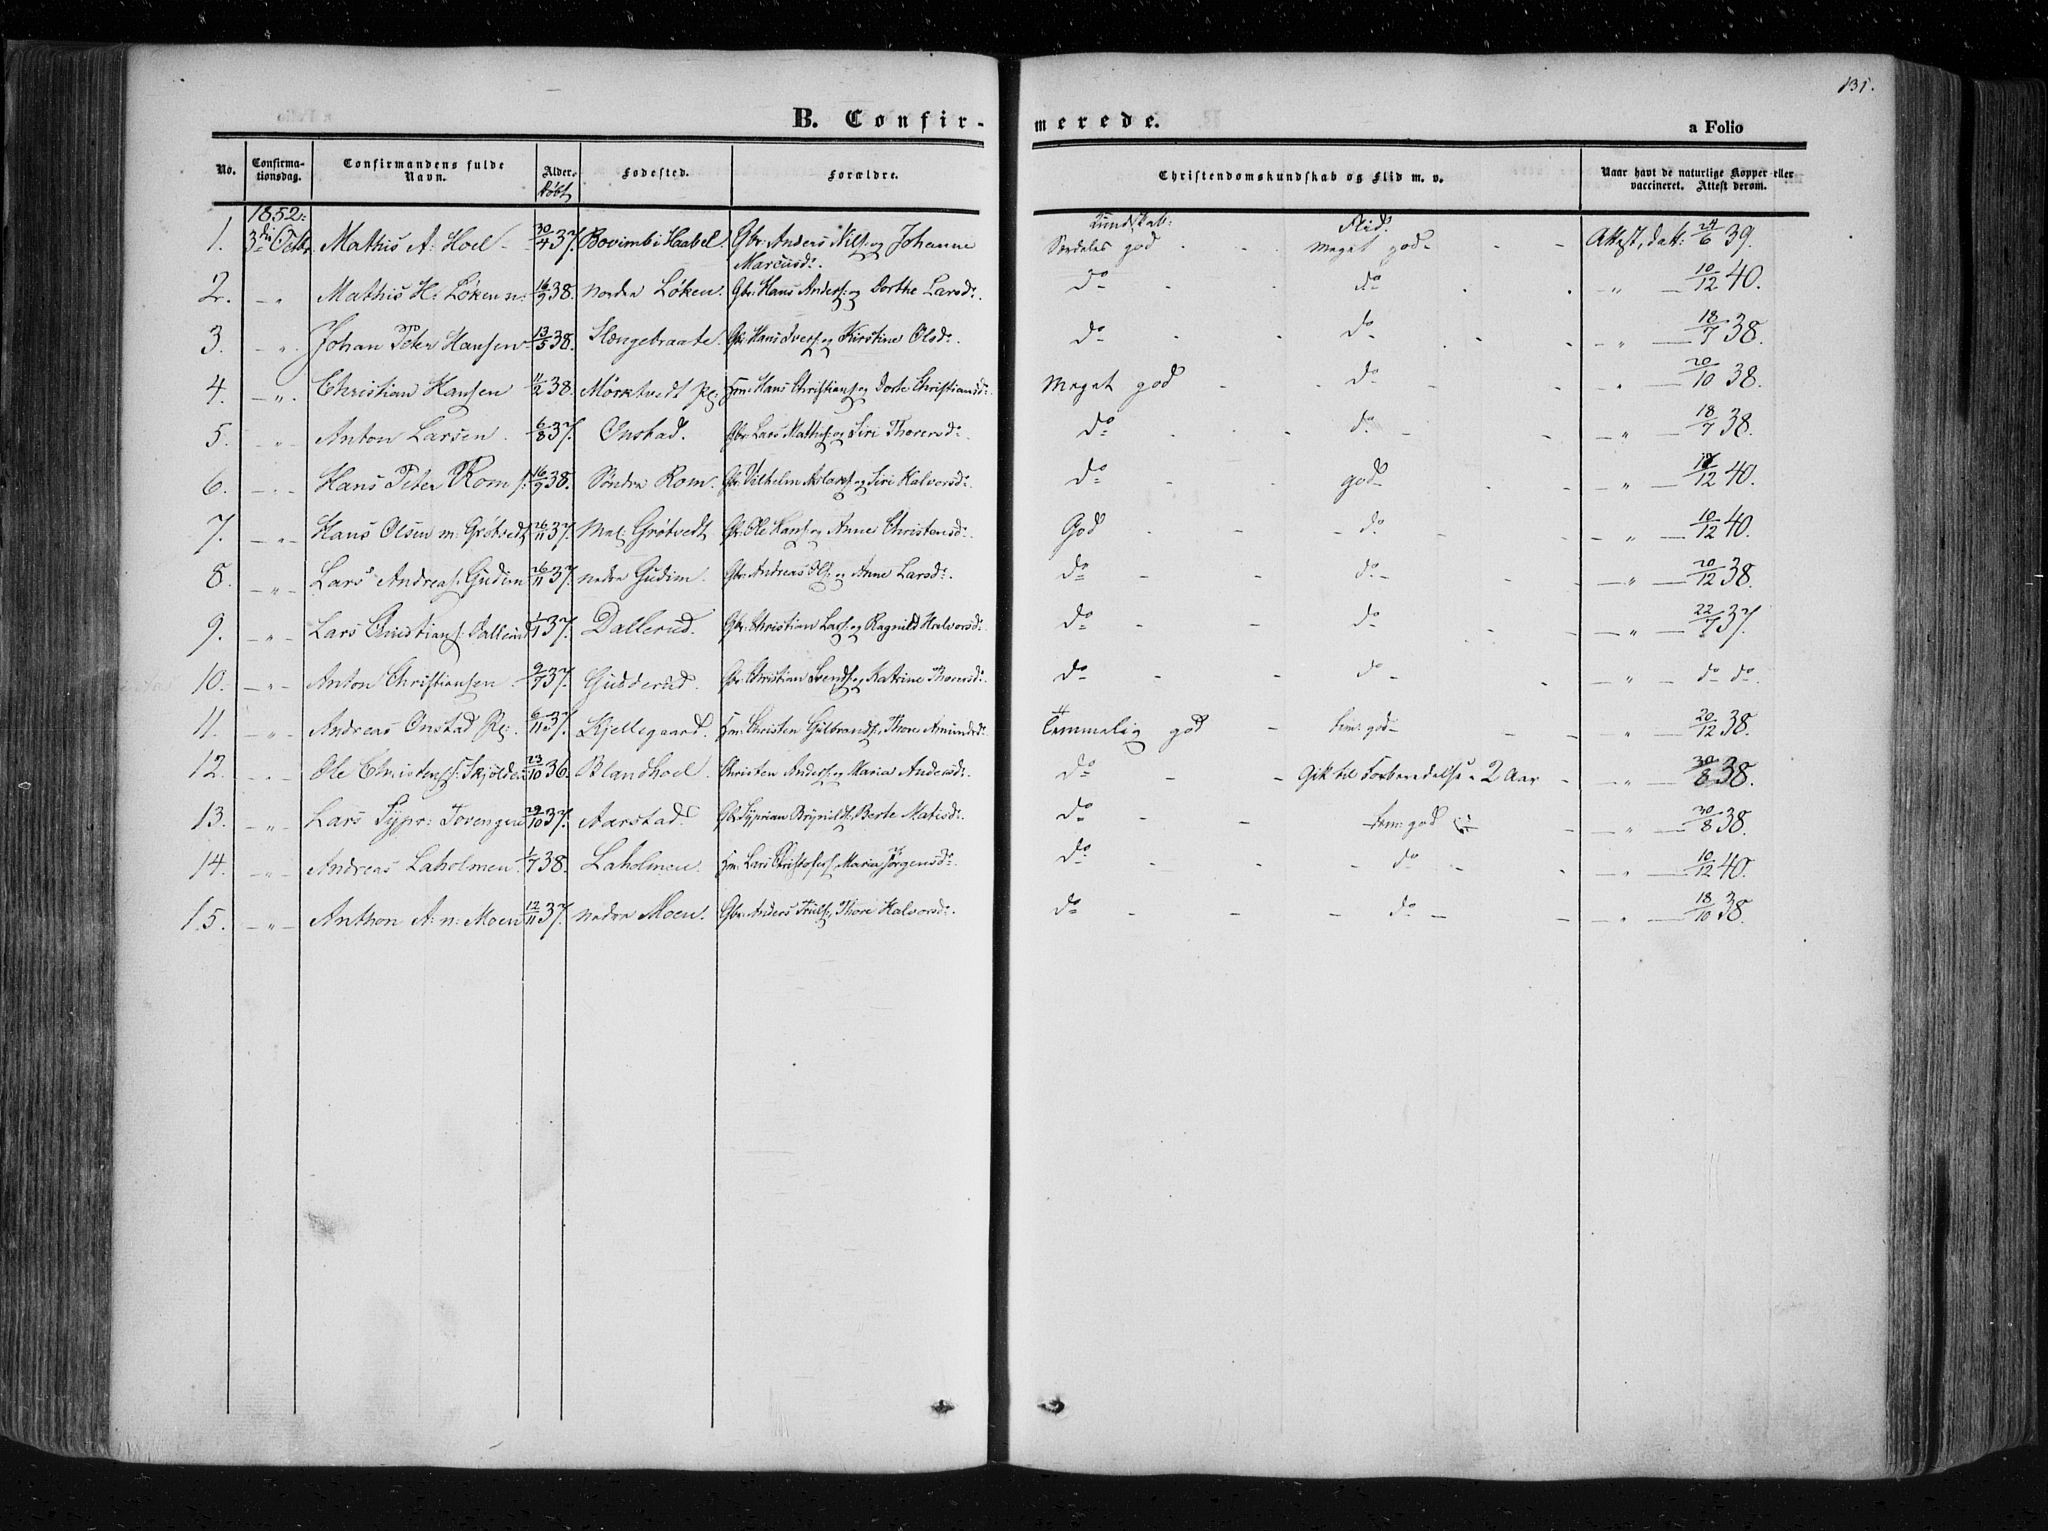 131.
B. Confir-merede.
a Folio
No. Confirma-tionsdag. Confirmandens fulde Navn. Alder. født Fødested. Forældre. Christendomskundskab og Flid m. v. Naar havt de naturlige Kopper eller vaccineret. Attest derom.
1852: Kundskab: Flid.
1. 3die Octbr Mathis A: Hoel 30/4 37. Bovimb i Haabel Gbr: Anders Nils: og Johanne Marcusd: Særdeles god Meget god Attest, dat: 24/6 39.
2. " Mathis H: Løken n: 16/9 38. Nordre Løken. Gbr: Hans Anders: og Dorthe Larsd: do do " 10/12 40.
3. " Johan Peter Hansen 13/5 38. Slængebraate. Gbr: Hans Ivers: og Kirstine Olsd: do do " 18/7 38.
4. " Christian Hansen 11/2 38. Mørktvedt Ei: Hans Christians: og Dorte Christiansd: Meget god do " 20/10 38.
5. " Anton Larsen. 6/8 37. Onstad. Gbr: Lars Mathis: og Siri Thorersd: do do " 18/7 38.
6. " Hans Peter Rom s: 16/9 38. Søndre Rom. Gbr: Vilhelm Aslaks: og Siri Halvorsd: do god " 12/12 40.
7. " Hans Olsen m: Grøtvedt 26/11 37. Mel: Grøtvedt Gbr: Ole Hans: og Anne Christensd: God do " 10/12 40.
8. " Lars Andreas: Gudim 26/11 37. nedre Gudim. Gbr: Andreas Ols: og Anne Larsd: do do " 20/12 38.
9. " Lars Christians: Dallerud 1/1 37. Dallerud. Gbr: Christian Lars: og Ragnild Halvorsd: do do " 22/7 37.
10. " Anton Christiansen. 9/7 37. Gudderud. Gbr: Christian Svends: og Katrine Thorersd: do do " do do
11. " Andreas Onstad 6/11 37. Kjellegaard. Christen Gulbrands: Thore Amundsd: Temmelig god tem: god " 20/12 38.
12. " Ole Christens: Skjølden 23/10 36. Blandhoel. Christen Anders: og Maria Andersd: do Gik til Forberedelse i 2 Aar " 30/8 38.
13. " Lars Sypr: Tovengen 29/10 37. Aarstad. Gbr: Syprian Brynilds: Berte Matisd: do tem: god " 30/8 38.
14. " Andreas Laholmen. 1/7 38. Laholmen. Lars Christofers: Maria Jørgensd: do do " 10/12 40.
15. " Anthon A: n: Moen 12/11 37. nedre Moen. Gbr: Anders Truls: Thore Halvorsd: do do " 18/10 38.